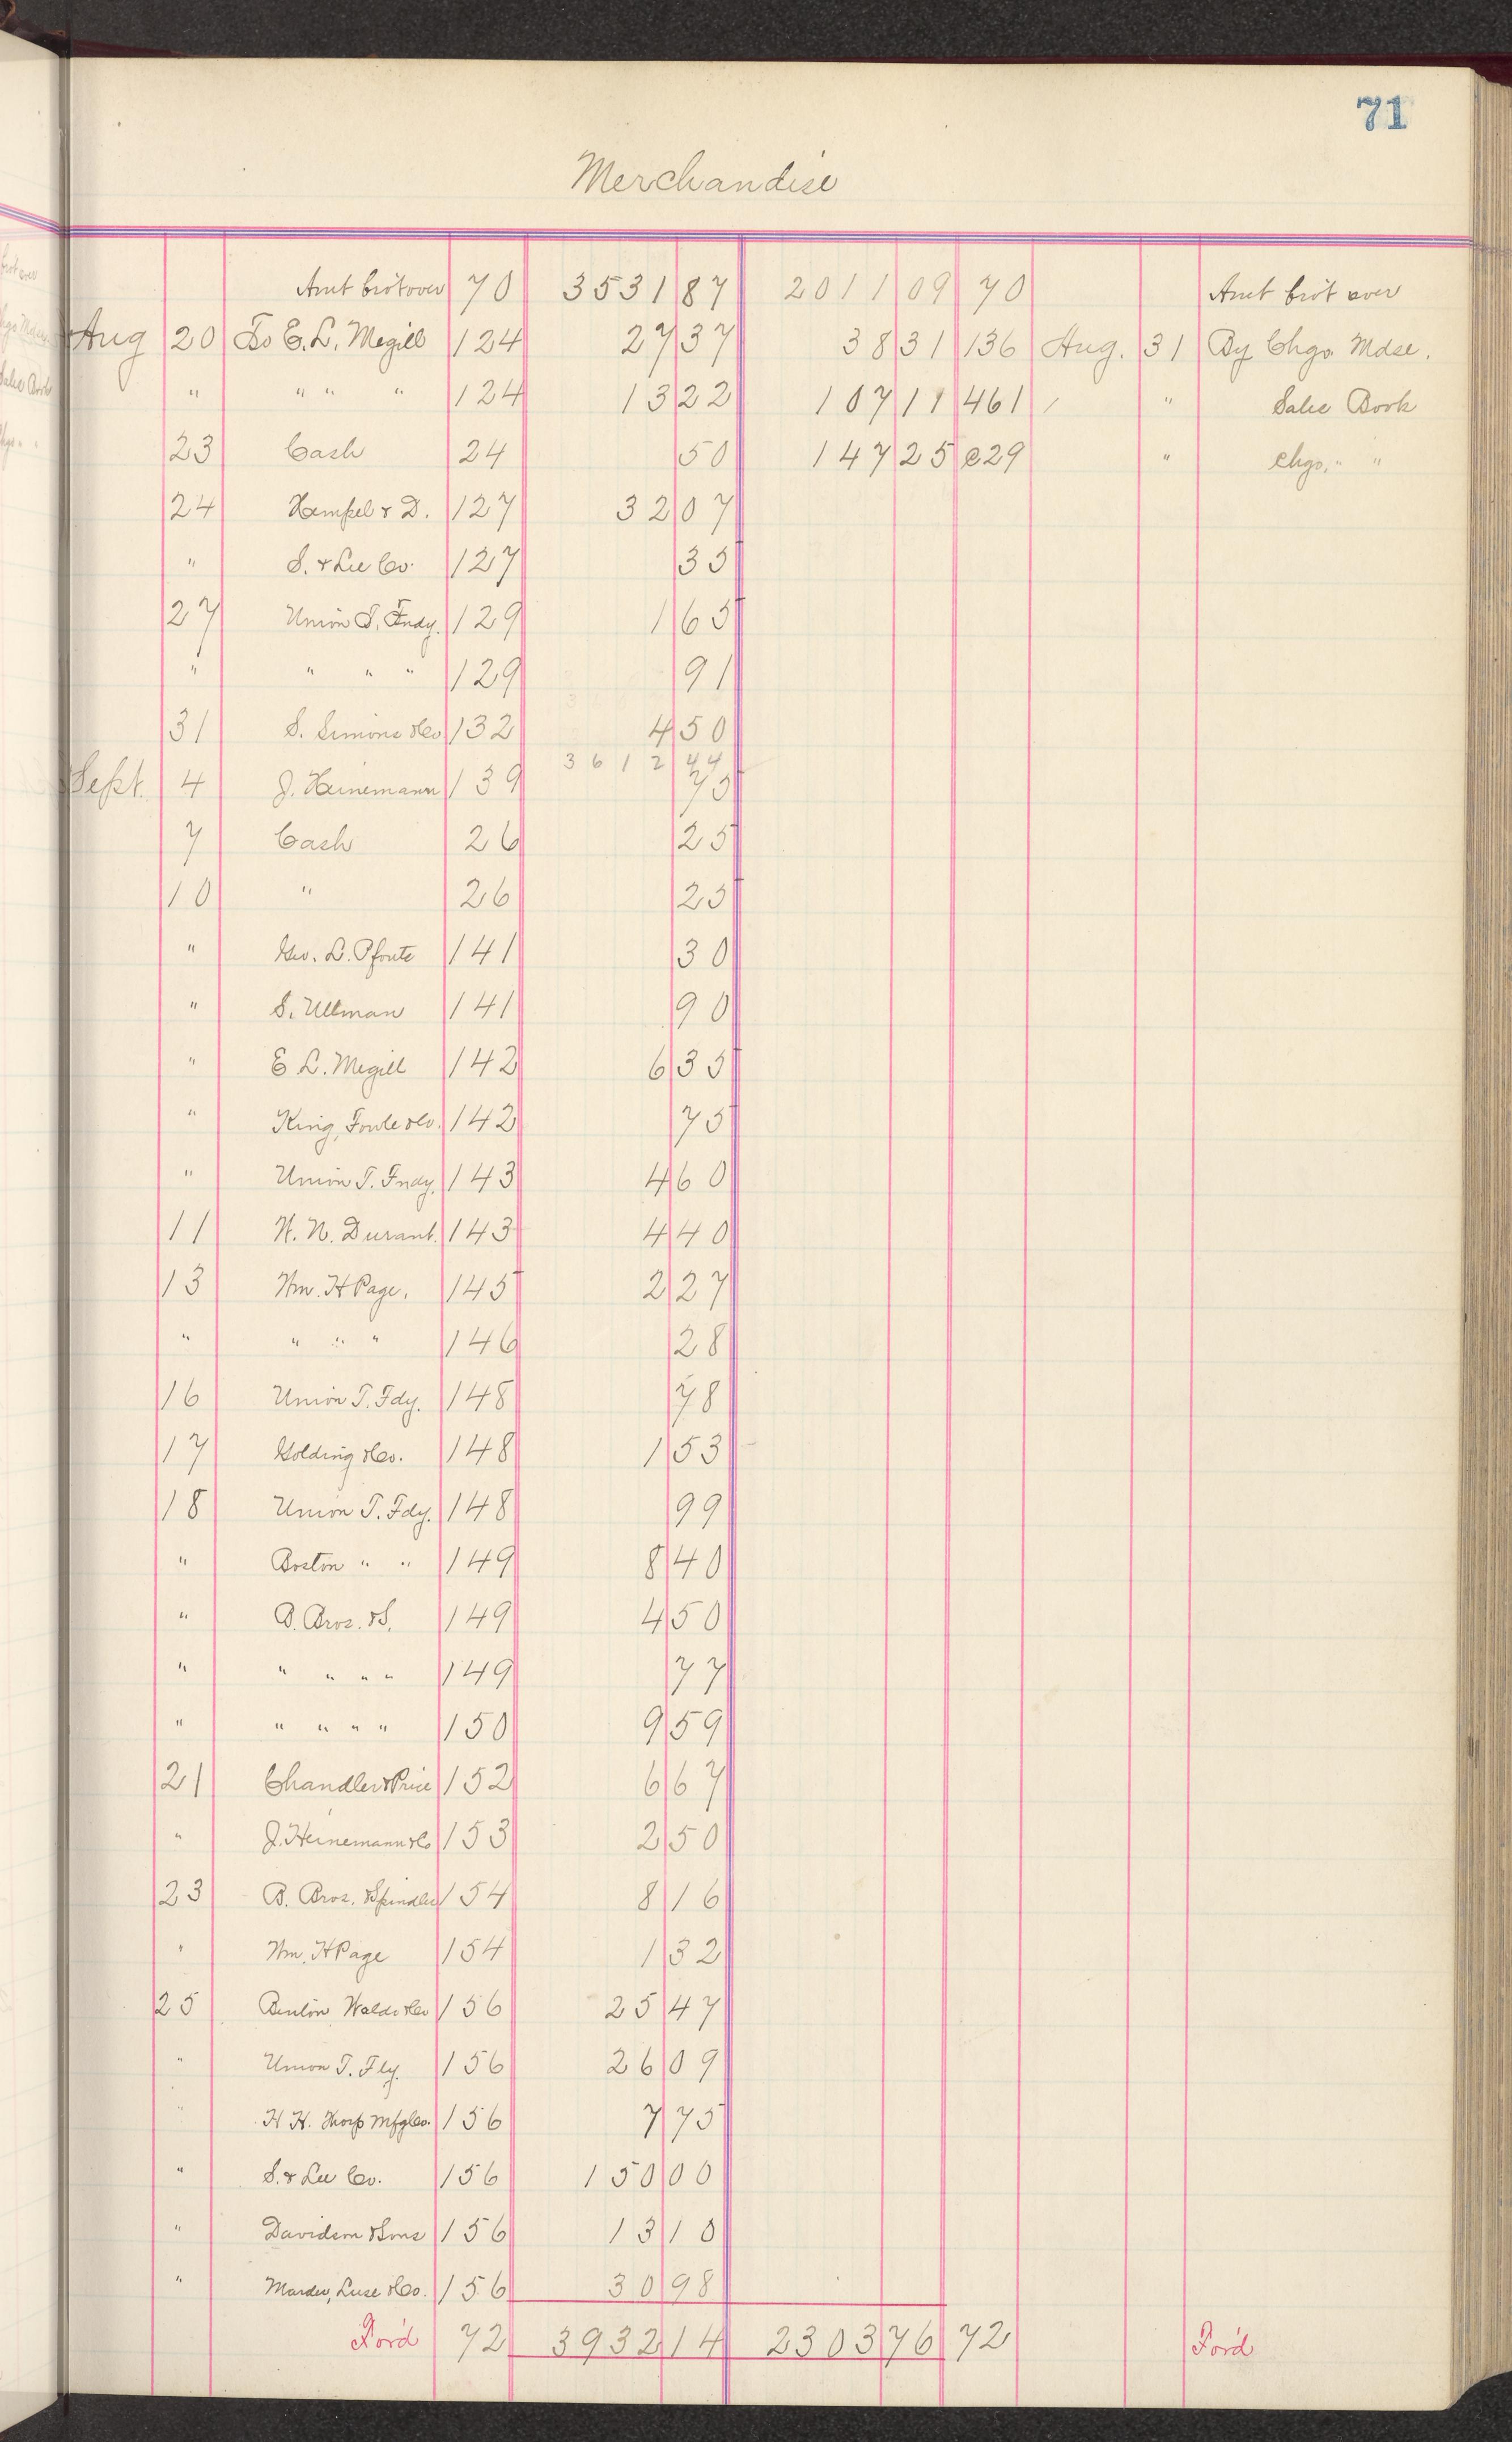 71
Merchandise
Amt brot over 70 3531 87 2011 09 70 Amt brot over
Aug 20 To E. L. Megill 124 27 37 38 31 136 Aug. 31 By Chgo. Mdse.
" " " " 124 13 22 107 11 461 " Sales Book
23 Cash 24 50 147 25 c29 " Chgo. " "
24 Hempel & D. 127 32 07
" S. & Lee Co. 127 35
27 Union T. Fndy. 129 1 65
" " " " 129 91
31 S. Simons & Co 132 4 50
3612 44
Sept. 4 J. Heinemann 139 75
7 Cash 26 25
10 " 26 25
" Geo. L. 141 30
" S. Ullman 141 90
" E L. Megill 142 6 35
" King, Fowle & Co. 142 75
" Union T. Fndy. 143 4 60
11 W. N. Durant. 143 4 40
13 Wm. H Page. 145 2 27
" " " " 146 28
16 Union T. Fdy. 148 78
17 Golding & Co. 148 1 53
18 Union T. Fdy. 148 99
" Boston " " 149 8 40
" B. Bros. & S. 149 4 50
" " " " " 149 77
" " " " " 150 9 59
21 Chandler & Price 152 6 67
" J. Heinemann & Co 153 2 50
23 B. Bros. & Spindler 154 8 16
" Wm. H Page 154 1 32
25 Benton Waldo & Co 156 25 47
" Union T. Fdy. 156 26 09
" H. H. Thorp Mfg Co. 156 7 75
" S. & Lee Co. 156 150 00
" Davidson & Sons 156 13 10
" Marder, Luse & Co. 156 30 98
For'd 72 3932 14 2303 76 72 For'd